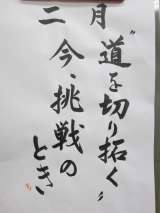 二月
“道を切り拓く”
今、挑戦の
とき